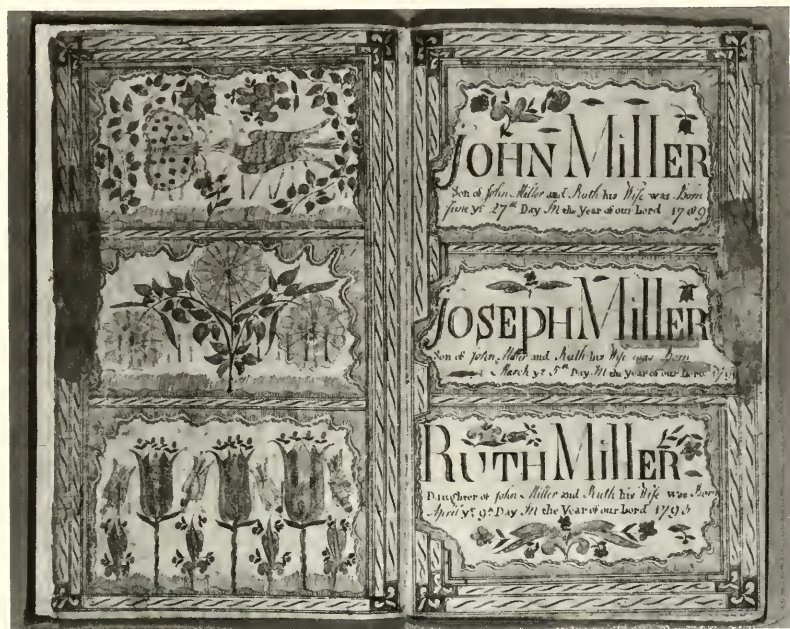 JOHN MILLER
Son of John Miller and Ruth his Wife was Born
June ye 27th Day In the Year of our Lord 1789
JOSEPH MILLER
Son of John Miller and Ruth his Wife was Born
March ye 5th Day In the Year of our Lord
RUTH MILLER
Daughter of John Miller and Ruth his Wife was Born
April ye 9th Day In the Year of our Lord 1793